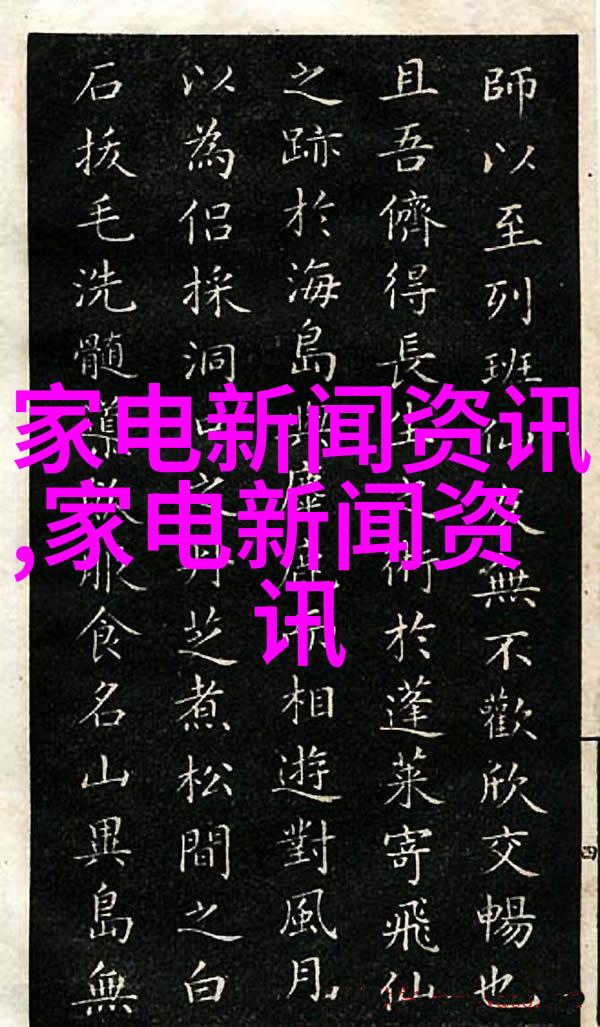 師以至列班仙及無不歡欣交暢也
且吾儕得長生之術於蓬萊寄飛仙
之跡於海島與麋鹿而相遊對風月
以為侶採洞口之丹芝煮松間之白
石拔毛洗髓導服食名山異島無
家电新闻资讯
,家电新闻资
讯
四